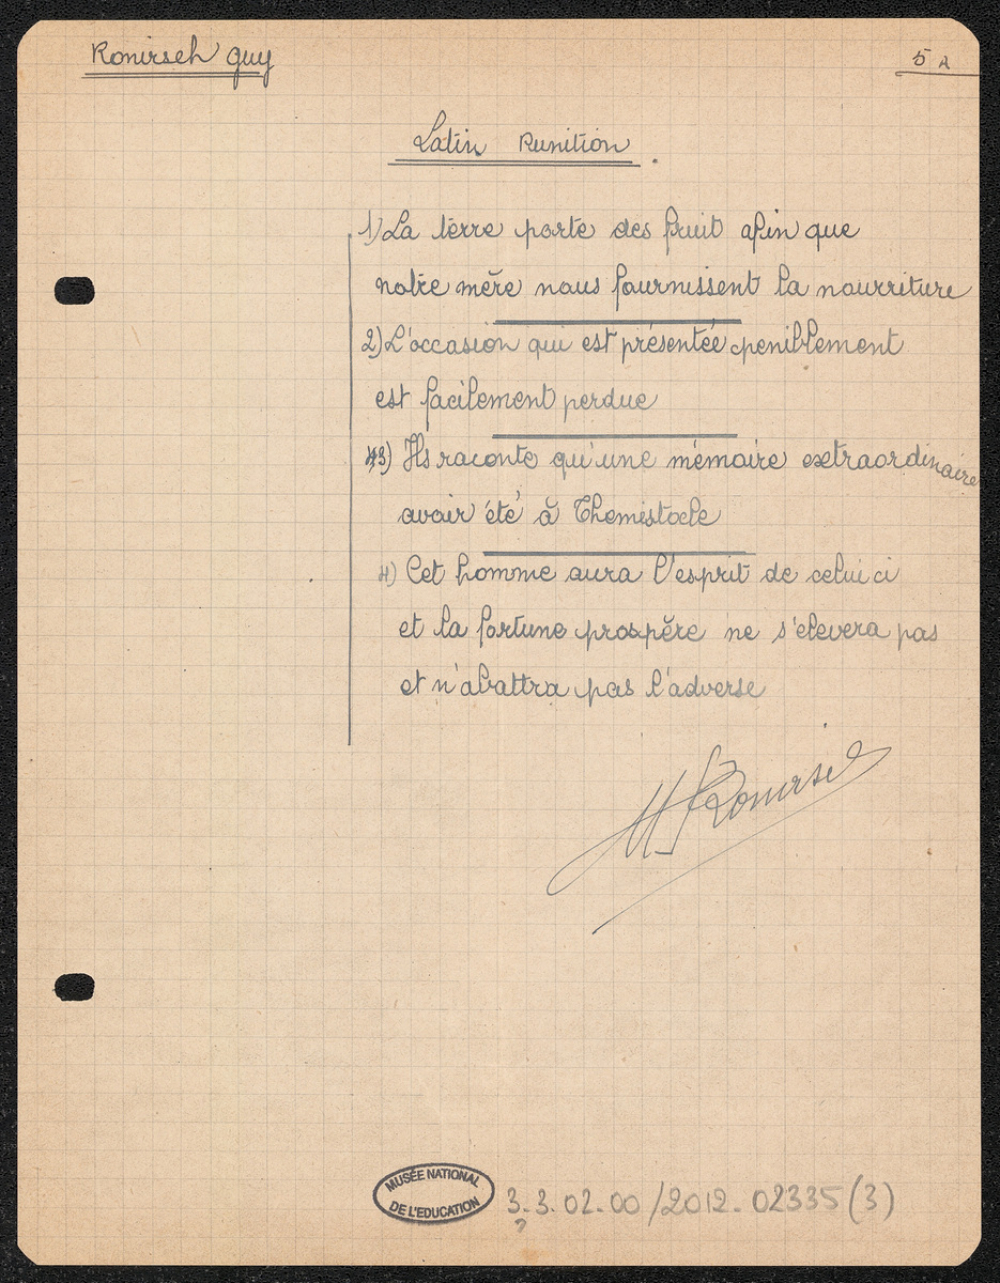 Romirsch Guy
5 A
Latin Punition.
1) La terre porte des fruit afin que
notre mère nous fournissent la nourriture
2) L'occasion qui est présentée peniblement
est facilement perdue
3) Ils raconte qu'une mémoire extraordinaire
avoir été à Themistocle
4) Cet homme aura l'esprit de celui ci
et la fortune prospère ne s'elevera pas
et n'abattra pas l'adverse
MUSÉE NATIONAL
DE L'EDUCATION
3.3.02.00/2012.02335(3)
?